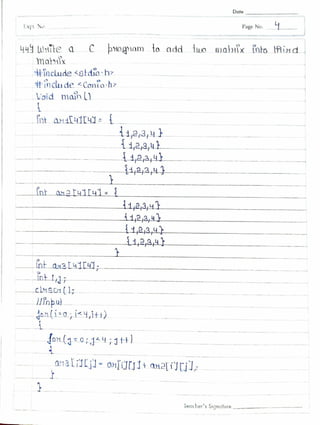 Date
Expt. No.
Page No. 4
Q4) Write a C program to add two matrix into third
matrix
#include <stdio.h>
#include <conio.h>
Void main ()
{
int arr1[4][4] = {
{1,2,3,4}
{1,2,3,4}
{1,2,3,4}
{1,2,3,4}
}
int arr2[4][4] = {
{1,2,3,4}
{1,2,3,4}
{1,2,3,4}
{1,2,3,4}
}
int arr3[4][4];
int i,j;
clrscr();
//input
for(i=0; i<4;i++)
{
for(j=0;j<4;j++)
{
arr3[i][j]= arr[i][j]+ arr2[i][j];
}
}
Teacher's Signature